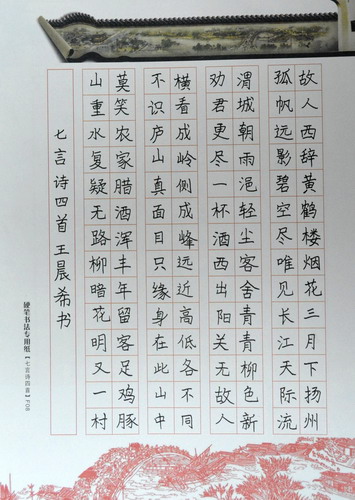 故人西辞黄鹤楼烟花三月下扬州
孤帆远影碧空尽唯见长江天际流
渭城朝雨浥轻尘客舍青青柳色新
劝君更尽一杯酒西出阳关无故人
横看成岭侧成峰远近高低各不同
不识庐山真面目只缘身在此山中
莫笑农家腊酒浑丰年留客足鸡豚
山重水复疑无路柳暗花明又一村
七言诗四首王晨希书
硬笔书法专用纸【七言诗四首】F08